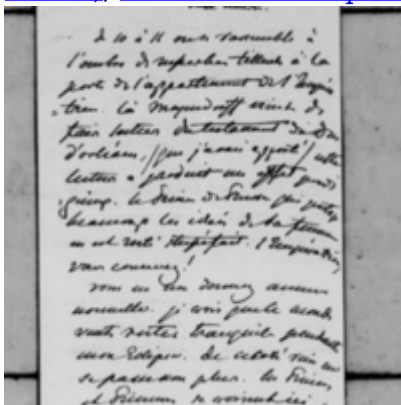 de 10 à 11 on se rassemble à
l'ombre de superbes tilleuls à la
porte de l'appartement de l'Impéra
trice. là Meyendorff vient de
faire lecture du testament du Duc
d'orléans, (que j'avais apporté) cette
lecture a produit un effet prodi
gieux. le Prince de Prusse qui partage
beaucoup les idées de sa femme
en est resté stupéfait. l'Impératrice
vous concevez!
vous ne me donnez aucune
nouvelle. je crois que le monde
veut rester tranquille pendant
mon Eclipse. De ce côté rien ne
se passe non plus. les Princes
et Princesses se